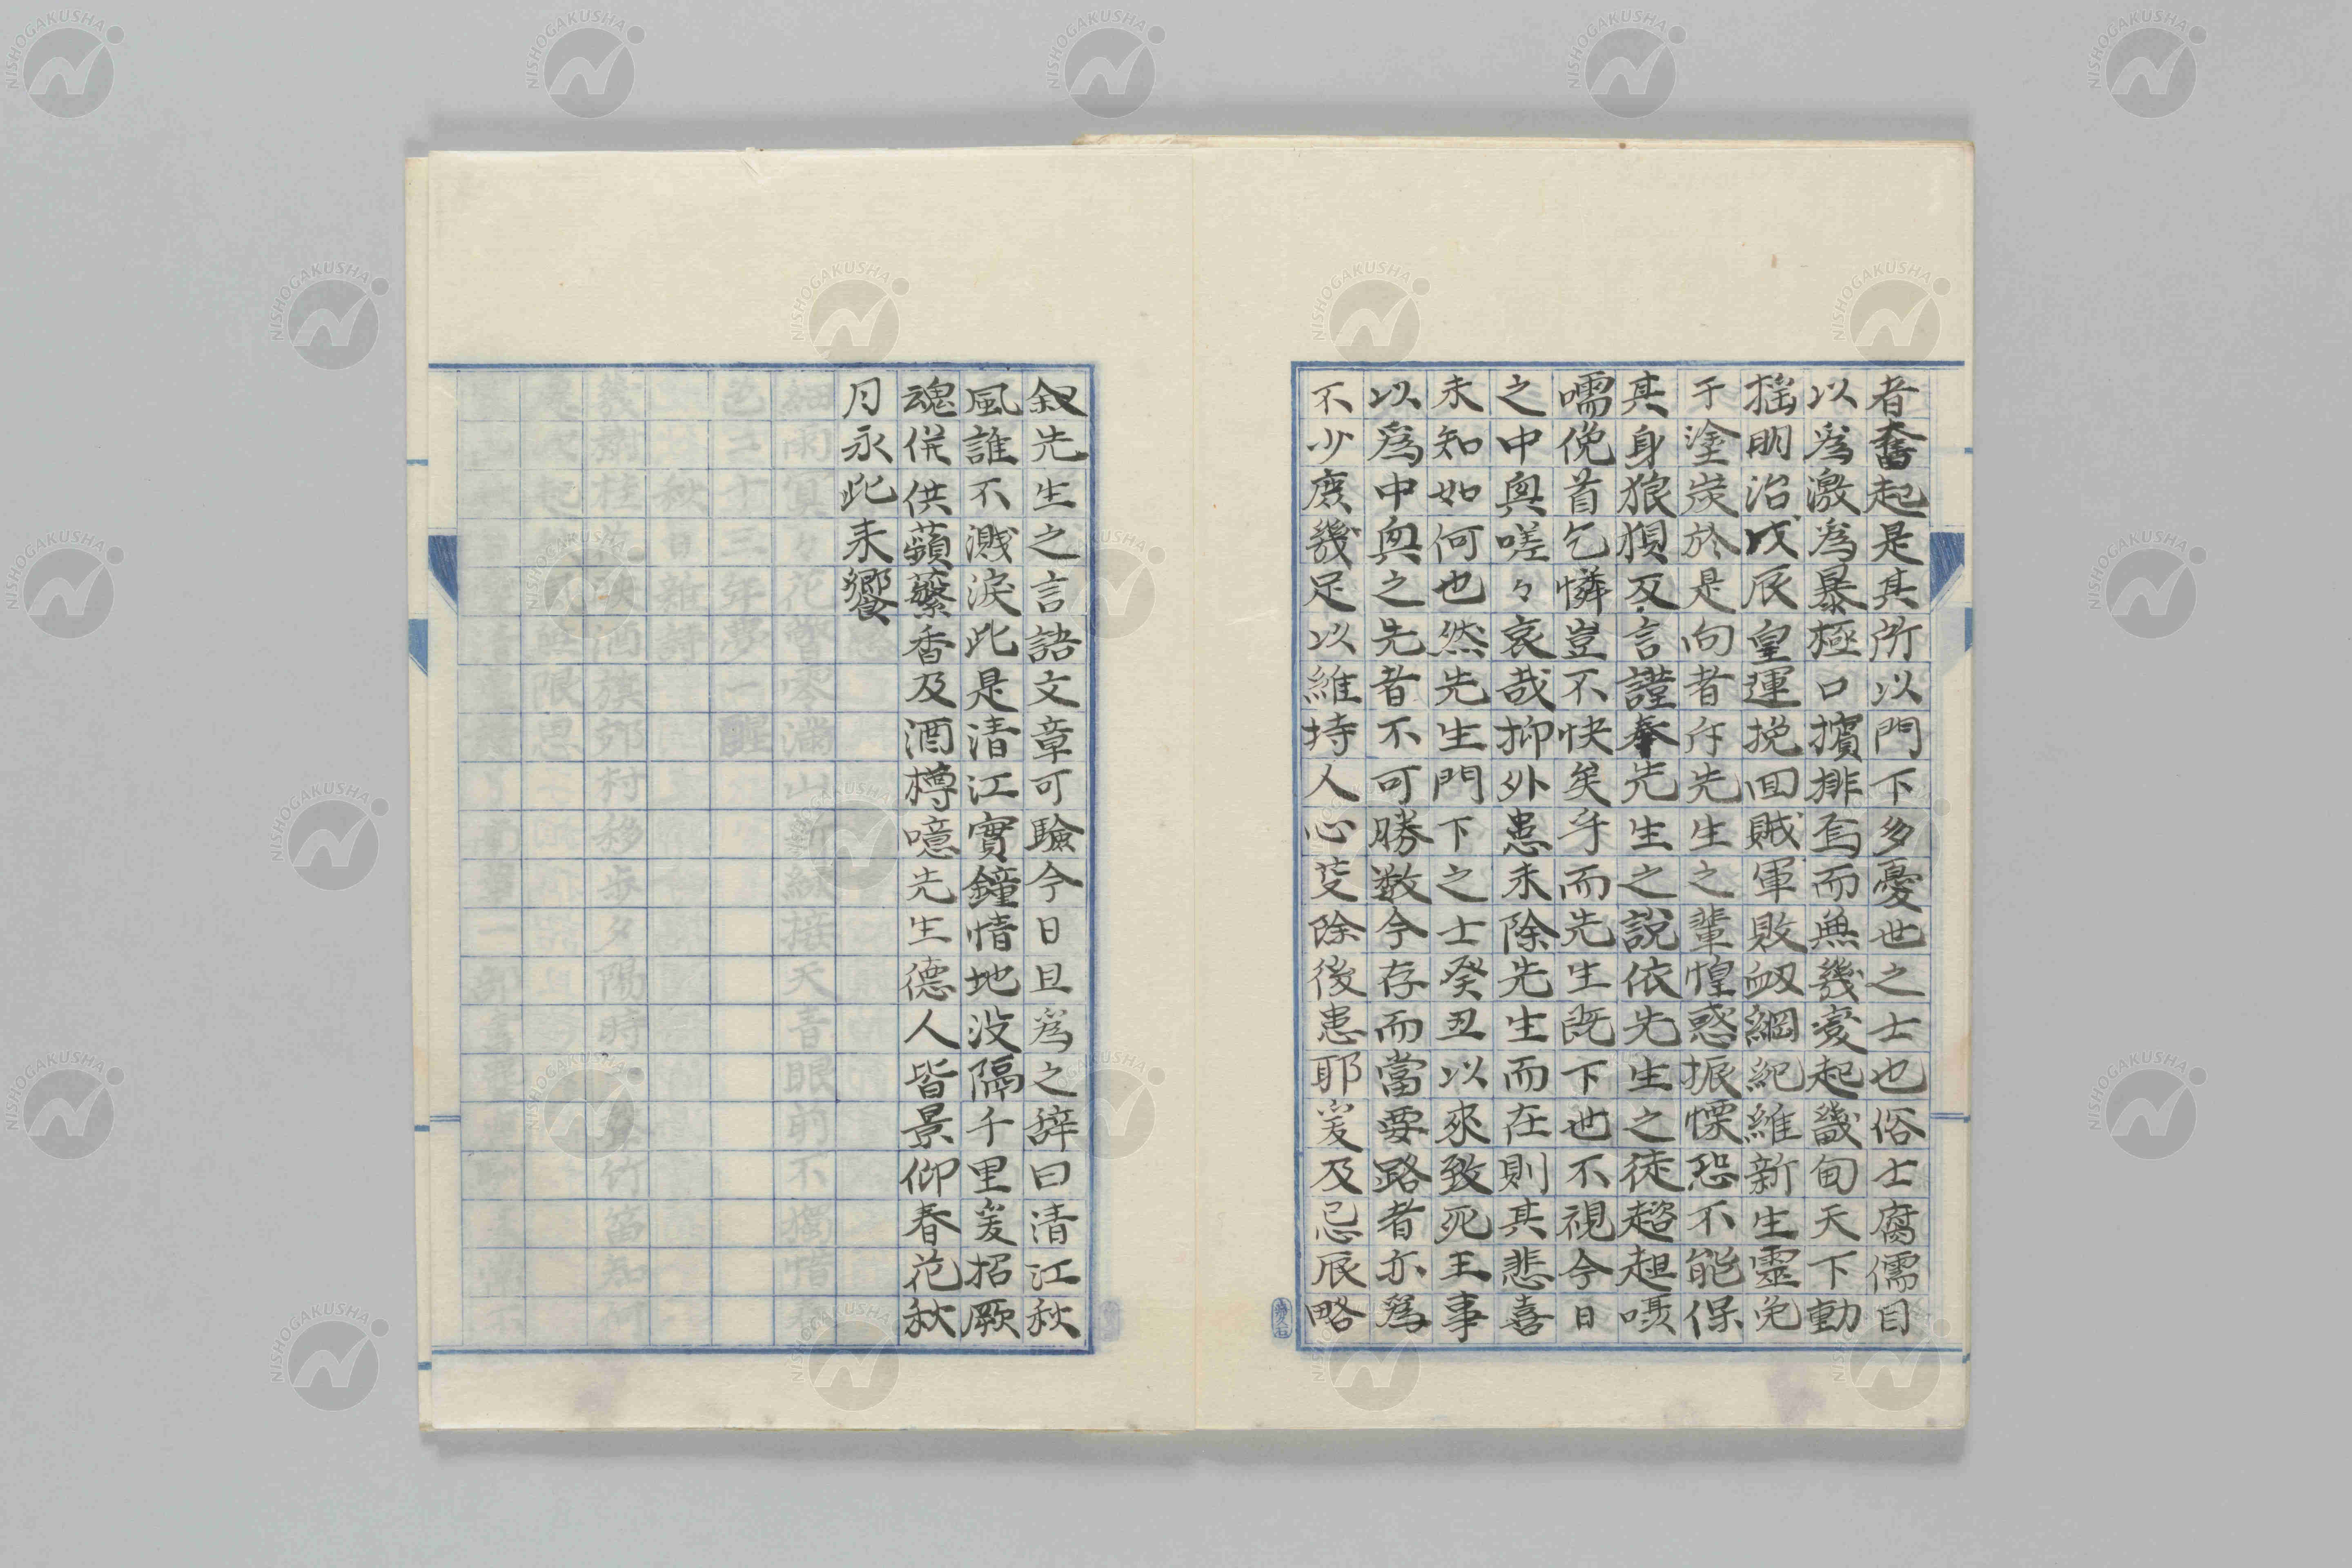 者奮起是其所以門下多憂世之士也俗士腐儒目
以爲激爲暴極口擯排焉而無幾変起畿甸天下動
揺明治戊辰皇運挽回賊軍敗衂綱紀維新生靈免
于塗炭於是向者斥先生之輩惶惑振慄恐不能保
其身狼狽反言謹奉先生之說依先生之徒趑趄囁
嚅俛首乞憐豈不快矣乎而先生既下世不視今日
之中興嗟々哀哉抑外患未除先生而在則其悲喜
未知如何也然先生門下之士癸丑以來致死王事
以爲中興之先者不可勝数今存而當要路者亦爲
不少庻幾足以維持人心芟除後患耶爰及忌辰略
叙先生之言語文章可驗今日且爲之辞曰清江秋
風誰不濺涙此是清江實鐘情地没隔千里爰招厥
魂併供蘋蘩香及酒樽噫先生德人皆景仰春花秋
月永此来饗